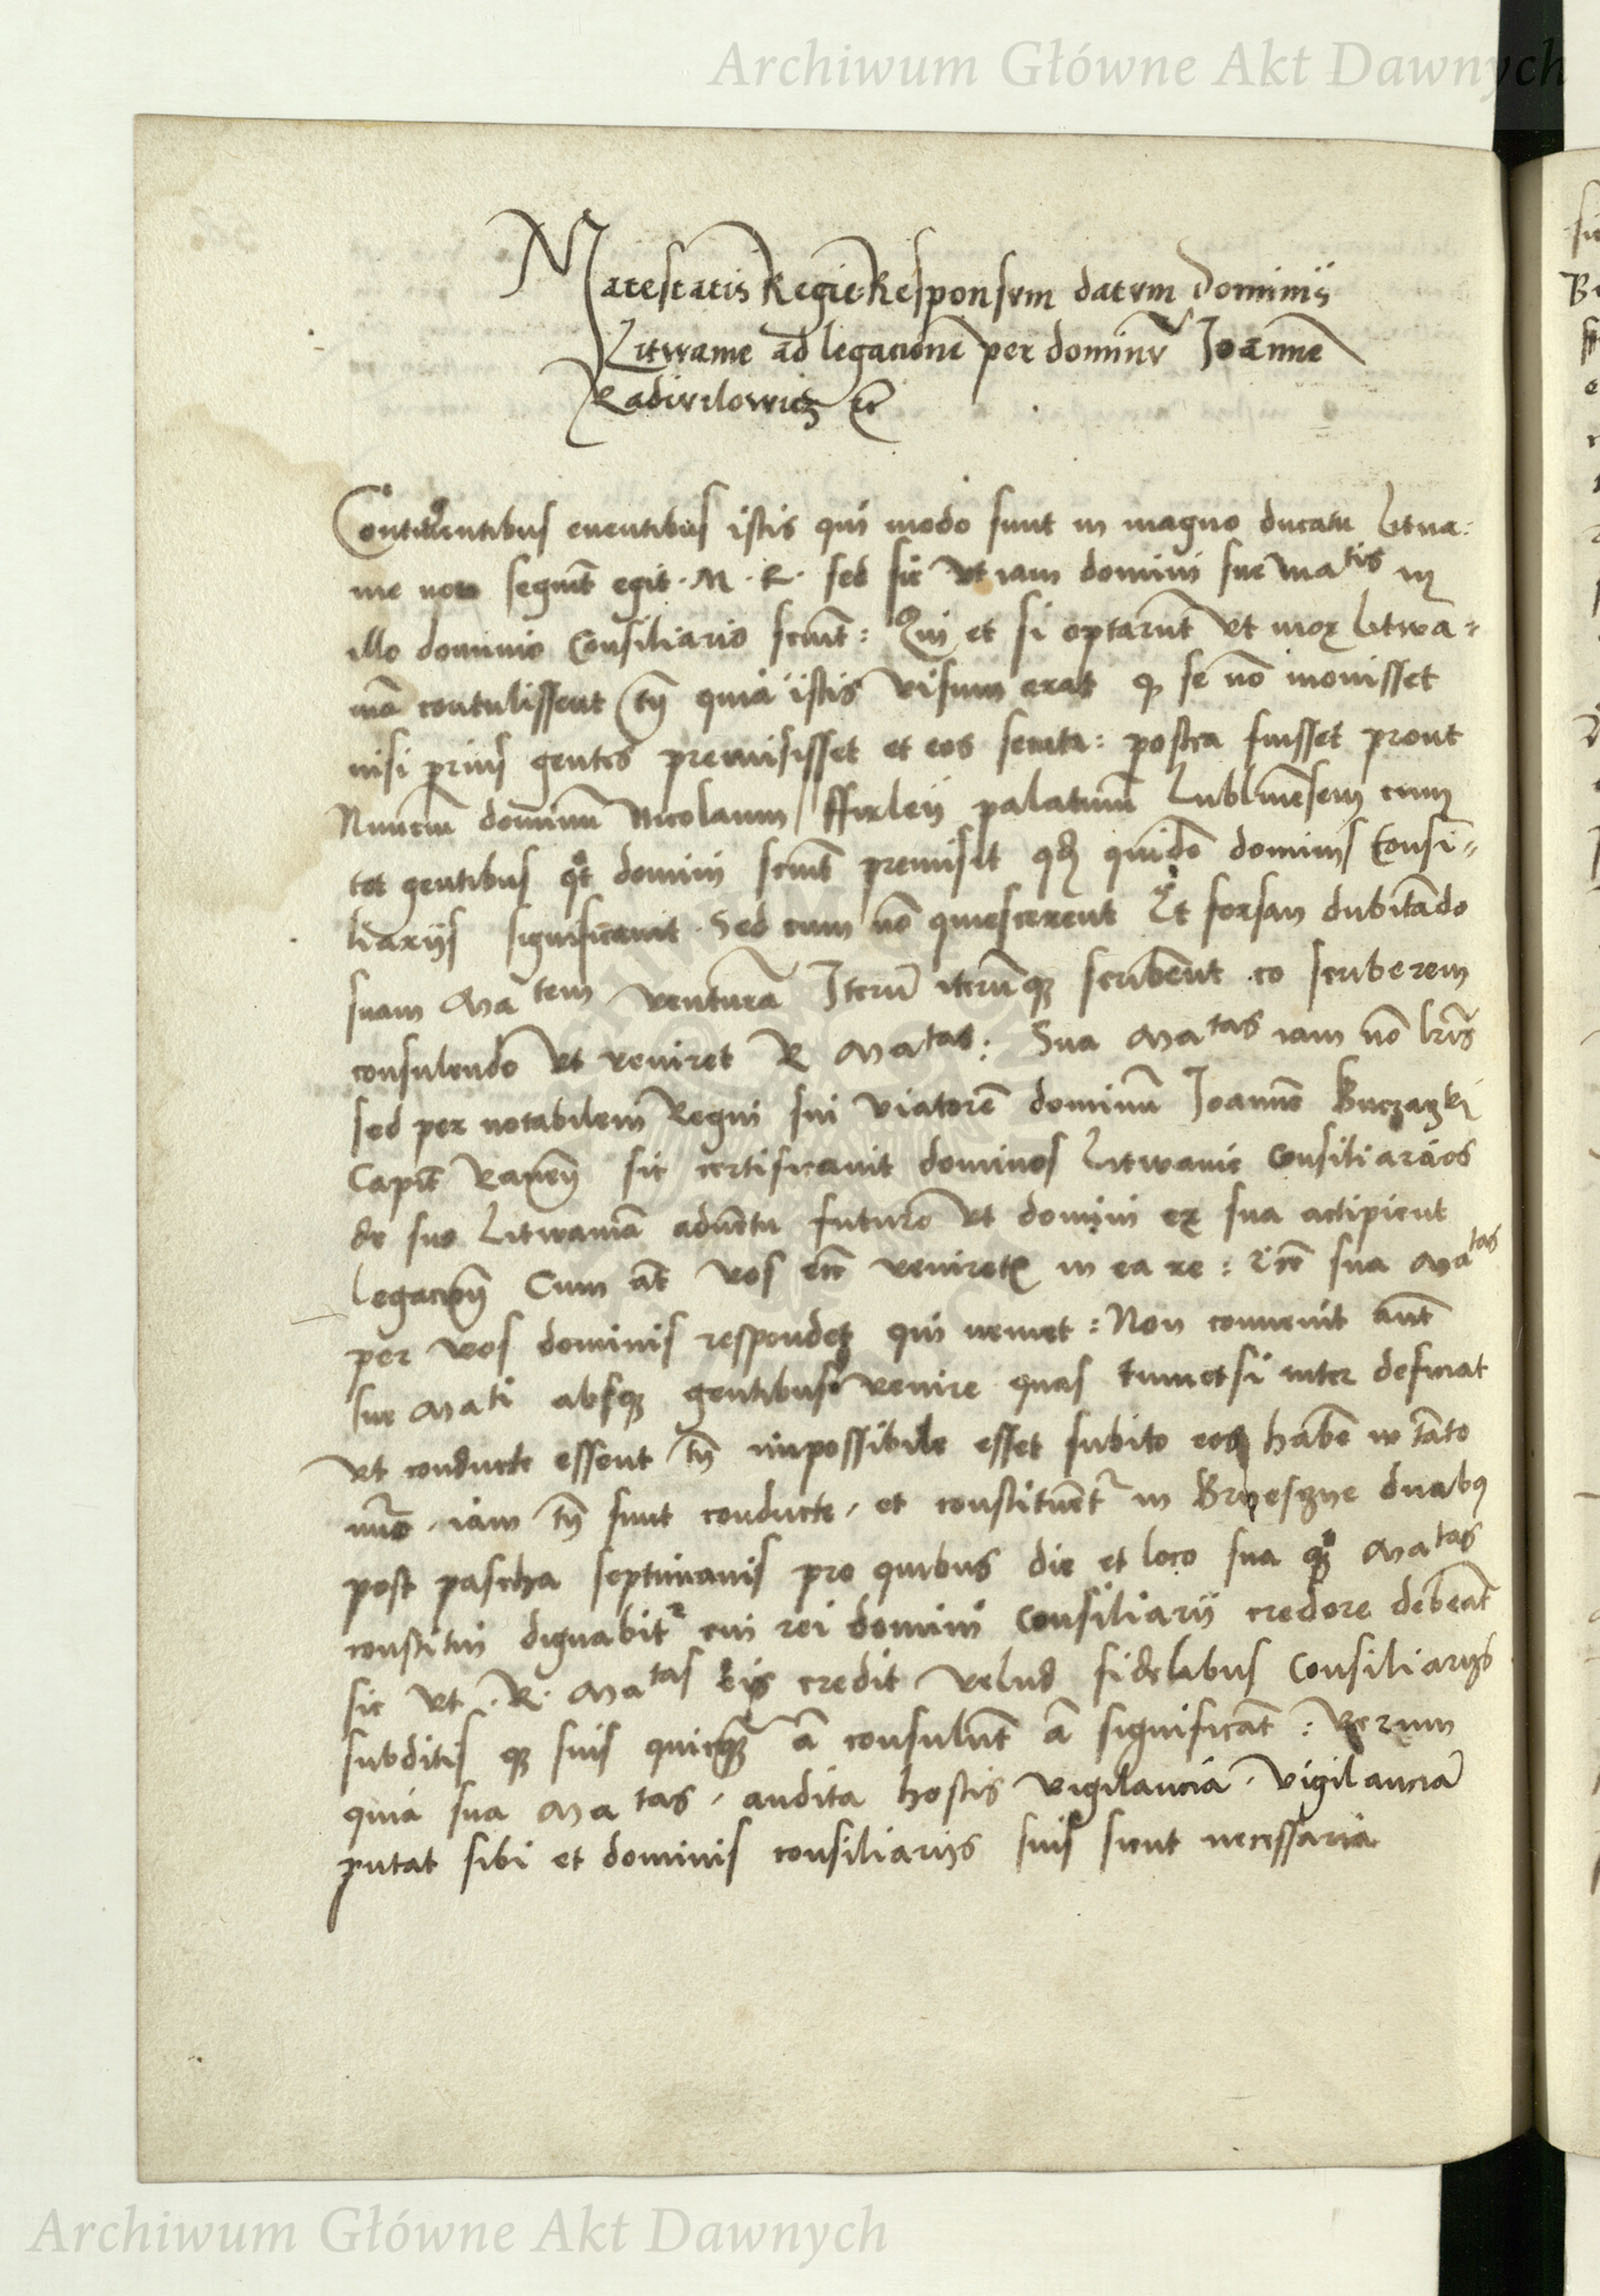 Archiwum Główne Akt Dawnych
Maiestatis Regie Responsum datum Dominis
Litwanie ad legacionē per dominū Joannē
Radivilowicz etc̄
eventibus istis qui modo sunt in magno ducatu Litua:
nie non segnit̄ egit · M · R · sed sic ut iam domini sue Matis in
illo dominio Consiliario sciūt : Qui et si optarūt ut mox Litwa=
niā contulissent tn̄ quia istis visum erat q se nō movisset
nisi prius gentes premisisset et eos secuta : postea fuisset prout
Nuncium dominū Nicolaum ffirleij palatinū Lublinēsem cum
tot gentibus qt domini sciūt premisit qd quidē dominis Consi=
liariis significavit · Sed cum nō quiescerent Et forsan dubitādo
suam Matem venturā Iterū iterūqꝫ scribent co scriberem
consulendo ut veniret R Matas : Sua Matas iam nō lr̄is
sed per notabilem Regni sui viatorē dominū Joannē Buczaczki
Capit̄ sic certificavit dominos Litwanie Consiliarios
de suo Litwaniā advētu futuro ut domini ex sua accipient
legacion̄ Cum at̄ vos veniretis in ea re : sua Matas
per vos dominis respondet qui veniet : Non convenit aut̄
sue Mati absqꝫ gentibus venire quas tametsi inter deficiat
ut conducte essent tn̄ impossibile esset subito eos habē in tāto
nūo · iam tn̄ sunt conducte · et constituent̄ in duabꝰ
post pascha septimanis pro quibus die et loco sua qꝫ Matas
constitui dignabit̄ cui rei domini Consiliarii credere debeāt
sic ut · R · Matas eis credit velud fidelibus Consiliariis
subditis qꝫ suis quicqꝫ ā consulūt ā significāt : Verum
quia sua Matas · audita hostis vigilancia · vigilanciā
putat sibi et dominis consiliariis suis sicut necessaria
Archiwum Główne Akt Dawnych